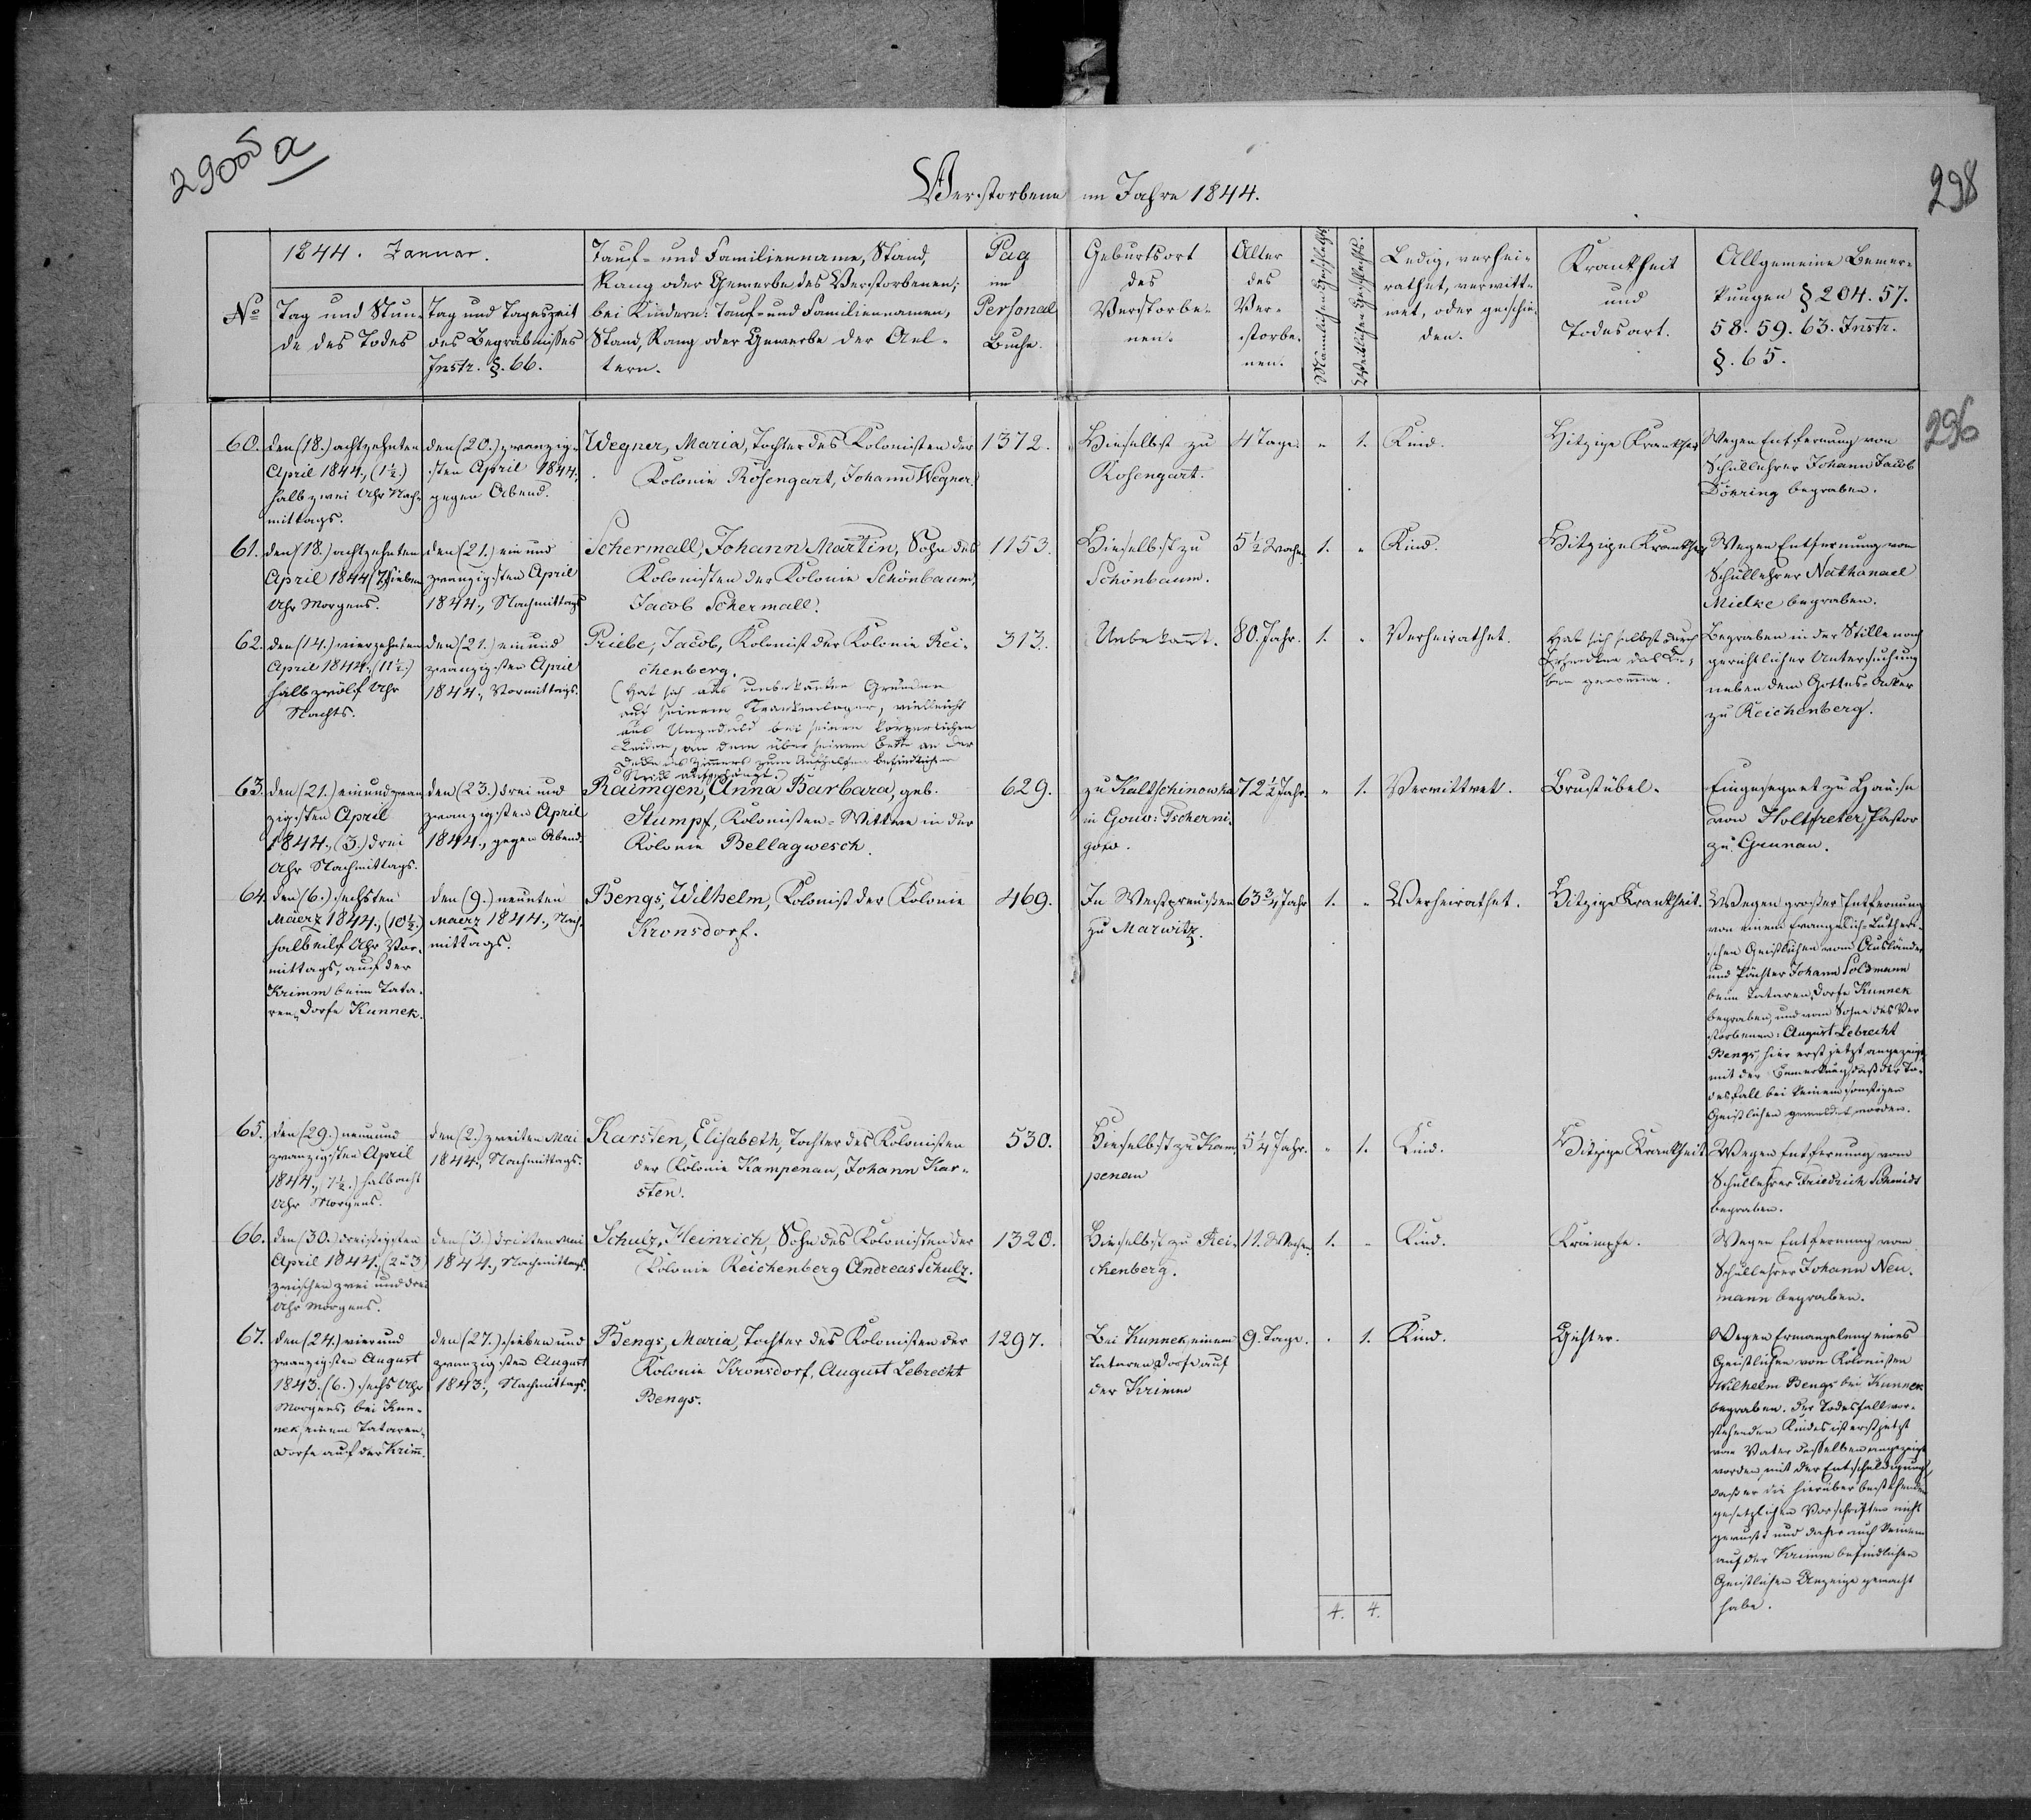 29005 a
298
Verstorbene im Jahre 1844.
1844. Januar.
No
Tag und Stun-
de des Todes
Tag und Tageszeit
des Begräbnisses
Instr. §. 66.
Tauf- und Familienname, Stand,
Rang oder Gewerbe des Verstorbenen;
bei Kindern: Tauf- und Familiennamen,
Stand, Rang oder Gewerbe der Ael-
tern.
Pag
im
Personal
Buche.
Geburtsort
des
Verstorbe-
nen.
Alter
des
Ver-
storbe-
nen.
Männlichen Geschlechts.
Weiblichen Geschlechts.
Ledig, verhei-
rathet, verwitt-
wet, oder geschie-
den.
Krankheit
und
Todesart.
Allgemeine Bemer-
kungen § 204. 57.
58. 59. 63. Instr.
§. 65.
296
60.
den (18.) achtzehnten
April 1844., (1½.)
halb zwei Uhr Nach-
mittags.
den (20.) zwanzig-
sten April 1844,
gegen Abend.
Wegner, Maria, Tochter des Kolonisten der
Kolonie Rosengart, Johann Wegner.
1372.
Hieselbst zu
Rosengart.
4 Tage.
"
1.
Kind.
Hitzige Krankheit
Wegen Entfernung von
Schullehrer Johann Jacob
Döhring begraben.
61.
den (18.) achtzehnten
April 1844 (7.) sieben
Uhr Morgens.
den (21.) ein und
zwanzigsten April
1844., Nachmittags
Schermall, Johann Martin, Sohn des
Kolonisten der Kolonie Schönbaum,
Jacob Schermall.
1153.
Hieselbst zu
Schönbaum.
5½ Wochen
1.
"
Kind.
Hitzige Krankheit
Wegen Entfernung vom
Schullehrer Nathanael
Mielke begraben.
62.
den (14.) vierzehnten
April 1844., (11½.)
halb zwölf Uhr
Nachts.
den (21.) ein und
zwanzigsten April
1844., Vormittags.
Priebe, Jacob, Kolonist der Kolonie Rei-
chenberg.
(Hat sich aus unbekannten Gründen
auf seinem Krankenlager, vielleicht
aus Ungeduld bei seinen körperlichen
Leiden, an dem über seinem Bette an der
Decke des Zimmers zum Aufhelfen befindlichen
Strick aufgehängt.)
313.
Unbekannt.
80. Jahr.
1.
"
Verheirathet.
Hat sich selbst durch
Erhenken das Le-
ben genommen.
Begraben in der Stille nach
gerichtlicher Untersuchung
neben dem Gottes-Acker
zu Reichenberg.
63.
den (21.) einundzwan
zigsten April
1844., (3.) drei
Uhr Nachmittags.
den (23.) drei und
zwanzigsten April
1844., gegen Abend.
Raimgen, Anna Barbara, geb.
Stumpf, Kolonisten-Wittwe in der
Kolonie Bellagwesch.
629.
zu Kaltschinowka
in Gouv: Tscherni-
gow.
72½ Jahr.
"
1.
Verwittwet.
Brustübel.
Eingesegnet zu Hause
von Holtfreter, Pastor
zu Grunau.
64.
den (6.) sechsten
Maerz 1844., (10½.)
halb eilf Uhr Vor-
mittags, auf der
Krimm beim Tata-
ren-Dorfe Kunnek.
den (9.) neunten
Maerz 1844., Nach-
mittags.
Bengs, Wilhelm, Kolonist der Kolonie
Kronsdorf.
469.
In Westpreußen
zu Marwitz.
63¾ Jahr
1.
"
Verheirathet.
Hitzige Krankheit.
Wegen großer Entfernung
von einem Evangelisch-Luthers-
schen Geistlichen vom Ausländer
und Pächter Johann Soldmann
beim Tataren-Dorfe Kunnek
begraben, und vom Sohne des Ver
storbenen: August Lebrecht
Bengs, hier erst jetzt angezeigt,
mit der Bemerkung, daß der To-
desfall bei keinem sonstigen
Geistlichen gemeldet worden.
65.
den (29.) neun und
zwanzigsten April
1844., (7½.) halb acht
Uhr Morgens.
den (2.) zweiten Mai
1844., Nachmittags.
Karsten, Elisabeth, Tochter des Kolonisten
der Kolonie Kampenau, Johann Kar-
sten.
530.
Hieselbst zu Kam-
penau
5¼ Jahr.
"
1.
Kind.
Hitzige Krankheit
Wegen Entfernung vom
Schullehrer Friedrich Schmidt
begraben.
66.
den (30.) dreißigsten
April 1844., (2 u 3)
zwischen zwei und drei
Uhr Morgens.
den (3.) dritten Mai
1844., Nachmittags.
Schulz, Heinrich, Sohn des Kolonisten der
Kolonie Reichenberg Andreas Schulz.
1320.
Hieselbst zu Rei-
chenberg.
11. Wochen.
1.
"
Kind.
Krämpfe.
Wegen Entfernung vom
Schullehrer Johann Neu-
mann begraben.
67.
den (24.) vier und
zwanzigsten August
1843. (6.) sechs Uhr
Morgens, bei Kun-
nek, einem Tataren-
Dorfe auf der Krim.
den (27.) sieben und
zwanzigsten August
1843., Nachmittags.
Bengs, Maria, Tochter des Kolonisten der
Kolonie Kronsdorf, August Lebrecht
Bengs.
1297.
Bei Kunnek, einem
Tataren Dorfe auf
der Krimm
9. Tage.
"
1.
Kind.
Gichter.
Wegen Ermangelung eines
Geistlichen vom Kolonisten
Wilhelm Bengs bei Kunnek
begraben. Der Todesfall vor-
stehenden Kindes ist erst jetzt
vom Vater desselben angezeigt
worden, mit der Entschuldigung,
daß er die hierüber bestehenden
gesetzlichen Vorschriften nicht
gewußt und daher auch keinem
auf der Krimm befindlichen
Geistlichen Anzeige gemacht
habe.
4.
4.